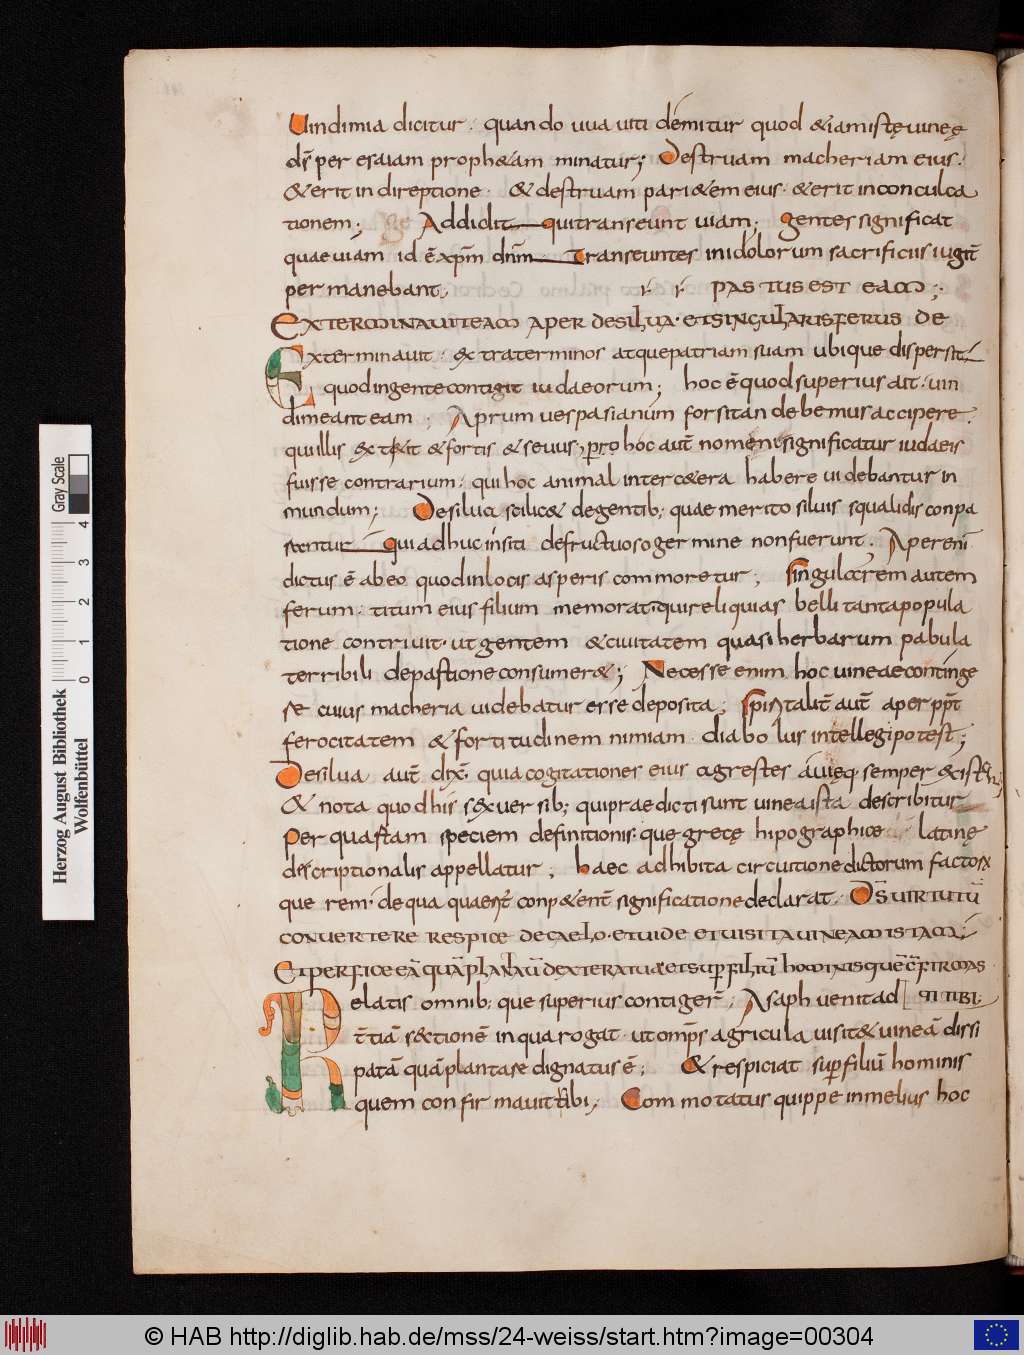 Uindimia dicitur · quando uua uiti demitur quod &iam istę uineę
ds̄ per esaiam proph&am minatur; Destruam macheriam eius ·
& erit in direptione · & destruam pari&em eius · & erit in conculca
tionem; Addidit qui transeunt uiam; gentes significat
quae uiam id ē xp̄m dn̄m Transeuntes in idolorum sacrificiis iugit̄
permanebant; PASTUS EST EAM;
EXTERMINAUIT EAM APER DE SILUA · ET SINGULARIS FERUS DE
Exterminauit · extra terminos atque patriam suam ubique dispersit
quod in gente contigit iudaeorum; hoc ē quod superius ait · uin
dimeant eam; Aprum uespasianum forsitan debemus accipere ·
qui illis extitit & fortis & seuus; pro hoc aut̄ nomeni significatur iudaeis
fuisse contrarium · qui hoc animal inter c&era habere uidebantur in
mundum; De silua scilic& degentib; quae merito siluis squalidis conpa
rentur Qui adhuc insiti de fructuoso germine non fuerunt · Aper eni
dictus ē ab eo quod in locis asperis commoretur; Singularem autem
ferum · titum eius filium memorat · qui reliquias belli tanta popula
tione contriuit · ut gentem & ciuitatem quasi herbarum pabula
terribili depastione consumer&; Necesse enim hoc uineae continge
re cuius macheria uidebatur esse deposita; Spiritalit̄ aut̄ aper ppt̄
ferocitatem & fortitudinem nimiam diabolus intellegi potest;
De silua aut̄ dix̄ · quia cogitationes eius agrestes
& nota quod his sex uersib; qui praedicti sunt uinea ista describitur
Per quartam speciem definitionis · que grecę hipographice latinę
descriptionalis appellatur; haec adhibita circuitione dictorum factorū
que rem · de qua quaerit̄ conp&ent̄ significatione declarat · DS̄ UIRTUTŪ
CONUERTERE RESPICE DE CAELO · ET UIDE ET UISITA UINEAM ISTAM;
ET PERFICE EĀ QUĀ PLANTAUIT DEXTERA TUA ET SUP FILIŪ HOMINIS QUĒ CŌFIRMAS
Relatis omnib; que superius contiger̄; Asaph uenit ad TI TIBI
t̄tiā sectionē in qua rogat · ut omp̄s agricula uisit& uineā dissi
patā quā plantare dignatus ē; & respiciat sup filiū hominis
quem confirmauit sibi; Commotatus quippe in melius hoc
Herzog August Bibliothek
Wolfenbüttel
0 1 2 3 4
Gray Scale
© HAB http://diglib.hab.de/mss/24-weiss/start.htm?image=00304